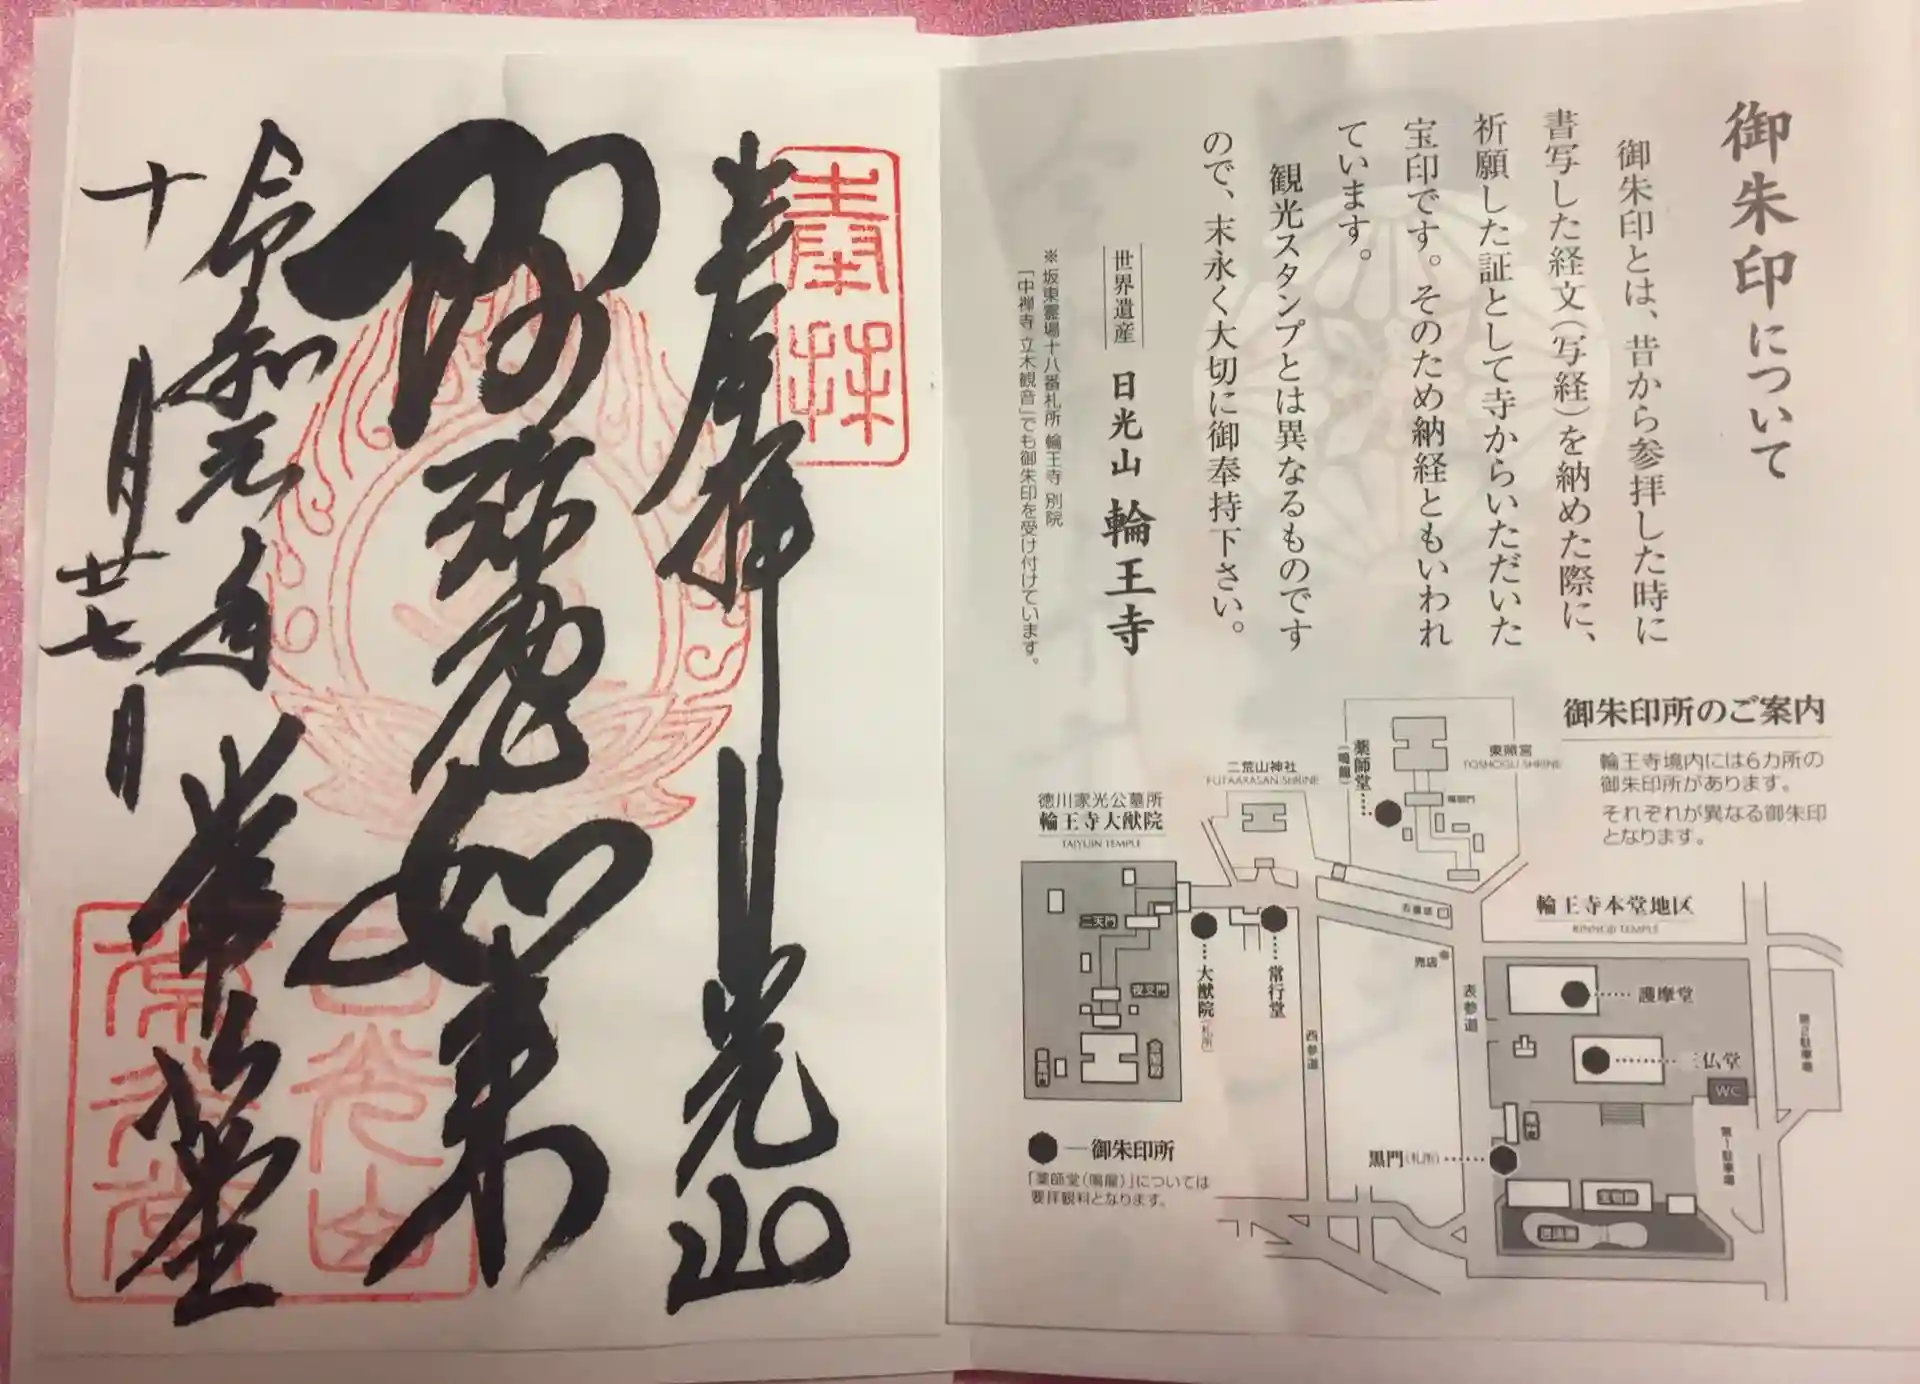 奉拝
奉拝 日光山
阿弥陀如来
令和元年 常行堂
十月廿七日
日光山
常行堂
御朱印について
御朱印とは、昔から参拝した時に
書写した経文(写経)を納めた際に、
祈願した証として寺からいただいた
宝印です。そのため納経ともいわれ
ています。
観光スタンプとは異なるものです
ので、末永く大切に御奉持下さい。
世界遺産 日光山 輪王寺
※ 坂東霊場十八番札所 輪王寺 別院
「中禅寺 立木観音」でも御朱印を受け付けています。
御朱印所のご案内
輪王寺境内には6カ所の
御朱印所があります。
それぞれが異なる御朱印
となります。
東照宮
TOSHOGU SHRINE
薬師堂
(鳴龍)
陽明門
二荒山神社
FUTAARASAN SHRINE
徳川家光公墓所
輪王寺大猷院
TAIYUIN TEMPLE
二天門
夜叉門
大猷院(札所)
常行堂
五重塔
売店
表参道
西参道
輪王寺本堂地区
RINNOJI TEMPLE
護摩堂
三仏堂
WC
第2駐車場
第一駐車場
黒門(札所)
宝物殿
逍遥園
御朱印所
「薬師堂(鳴龍)」については
要拝観料となります。